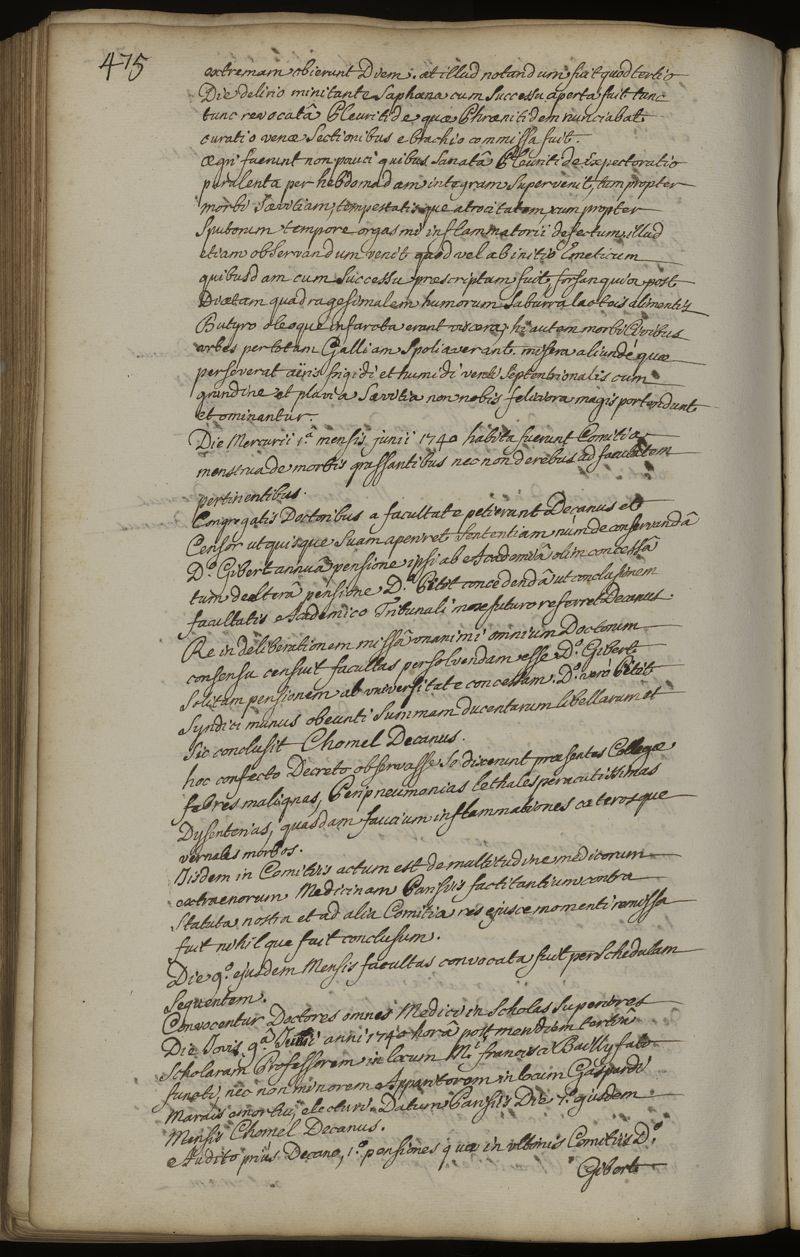 475
extremam obierunt Diem. et illud notandum fuit quod tertio
Die delirio minitante Saphæna cum Successu aperta fuit tunc
tunc revocatâ Pleuritide quæ Phrænitidem nunciabat
curatio venæ Sectionibus e brachio commissa fuit.
ægri fuerunt non pauci quibus Sanatâ Pleuritide Expectoratio
purulenta per hebdomadam integram Supervenit, tum propter
morbi Sævitiam, tempestatisque atrocitatem, cum propter
Sputorum tempore orgasmi inflammatorii defectum, illud
etiam observandum venit quod vel ab initio Emeticum
quibusdam cum Successu præscriptum fuit, forsan quia post
Diætam quadragesimalem humorum Saburra lactois alimentis
Butyro oleoque infarcta erant viscera; hi autem morbi Civibus
urbes per totam Galliam Spoliaverant. misera aliunde quæ
perseverat aëris frigidi et humidi venti Septentrionalis cum
grandine et pluvia Sævitia non nobis feliciora magis portendunt
et ominantur.
Die Mercurii 1.ª mensis junii 1740 habita fuerunt Comitia
menstrua de morbis grassantibus nec non de rebus ad facultatem
pertinentibus.
Congregatis Doctoribus a facultate petierunt Decanus et
Censor ut quisque Suam aperiret Sententiam num de conservandâ
D.º Gibert annuâ pensione ipsi ab Academiâ olim concessâ
tum de alterâ pensione D.º Petit concedendâ ut conclusionem
facultatis Academico Tribunali mox futuro referret Decanus.
Re in deliberationem missâ unanimi omnium Doctorum
consensu censuit facultas persolvendam esse D.º Gibert
Solitam pensionem ab universitate concessam D.º verò Petit
Syndici munus obeunti Summam ducentarum libellarum et
Sic conclusit Chomel Decanus.
hoc confecto Decreto observasse So dixerunt præsentes Collegæ
febres malignas, Peripneumonias lethales peracutissimas
Dysenterias, quasdam faucium inflammationes cæterosque
vernales morbos.
Iisdem in Comitiis actum est de multitudine medicorum
extraneorum Medicinam Parisiis factitantium contra
Statuta nostra et ad alia Comitia res ejusce momenti remissa
fuit nihilque fuit conclusum.
Die 9.º ejusdem Mensis facultas convocata fuit per Schedulam
Sequentem.
Convocentur Doctores omnes Medici in Scholas Superiores
Die Jovis 9.ª Junii anni 1740 horâ post meridiem tertiâ
Scholarum Professorem in locum M.i francisci Bailly fato
functi, nec non minorem Apparitorem in locum Gaspardi
Marais emortui, electuri. Datum Parisiis Die 7.º ejusdem
Mensis Chomel Decanus.
Audito priùs Decano, 1.º pensiones quæ in ultimis Comitiis D.º
Gibert